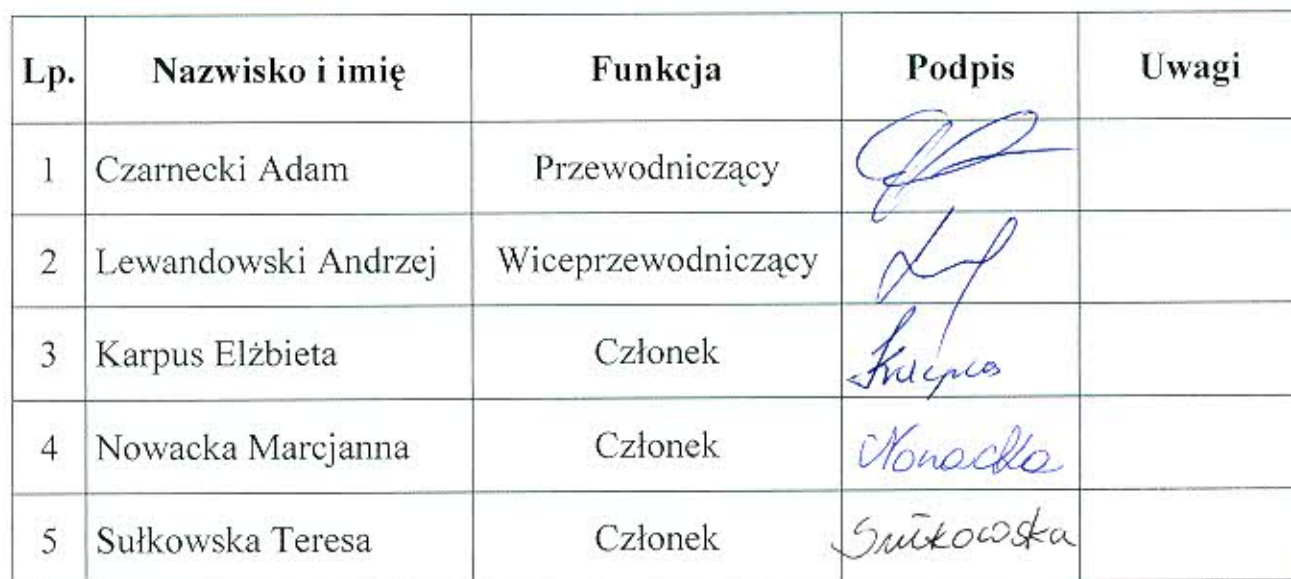 Lp. Nazwisko i imię Funkcja Podpis Uwagi
1 Czarnecki Adam Przewodniczący
2 Lewandowski Andrzej Wiceprzewodniczący
3 Karpus Elżbieta Członek Karpus
4 Nowacka Marcjanna Członek Nowacka
5 Sułkowska Teresa Członek Sułkowska